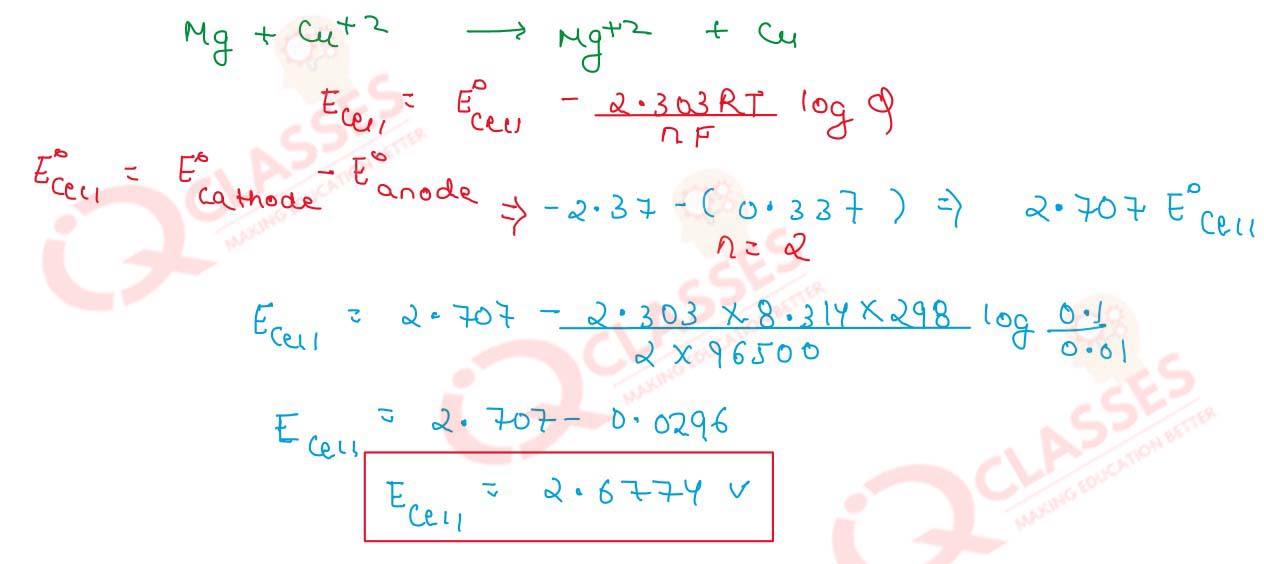 Mg + Cu+2 → Mg+2 + Cu
Ecell = E°cell - 2.303RT/nF log Q
E°cell = E°cathode - E°anode ⇒ -2.37 - ( 0.337 ) ⇒ 2.707 E°cell
n = 2
Ecell = 2.707 - 2.303 × 8.314 × 298 / 2 × 96500 log 0.1/0.01
Ecell = 2.707 - 0.0296
Ecell = 2.6774 v
IQ CLASSES
MAKING EDUCATION BETTER
IQ CLASSES
MAKING EDUCATION BETTER
IQ CLASSES
MAKING EDUCATION BETTER